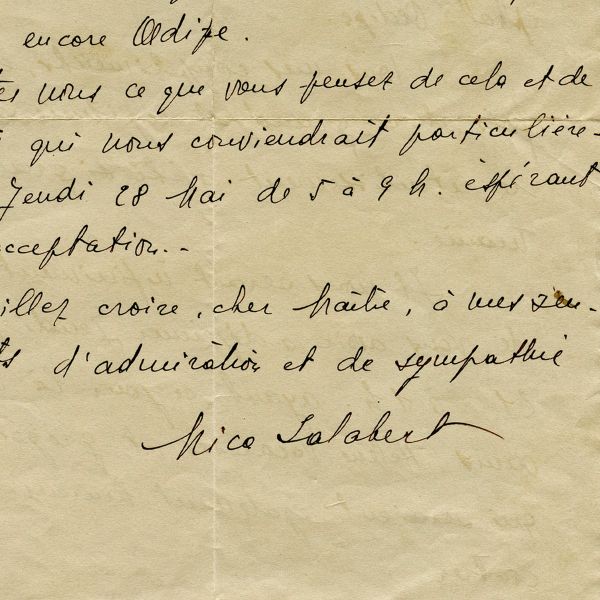 encore Œdipe.
tes nous ce que vous pensez de cela et de
qui nous conviendrait particulière-
Jeudi 28 Mai de 5 à 9 h. éspérant
cceptation..
illez croire, cher Maître, à mes sen-
ts d'admiration et de sympathie
Mica Salabert